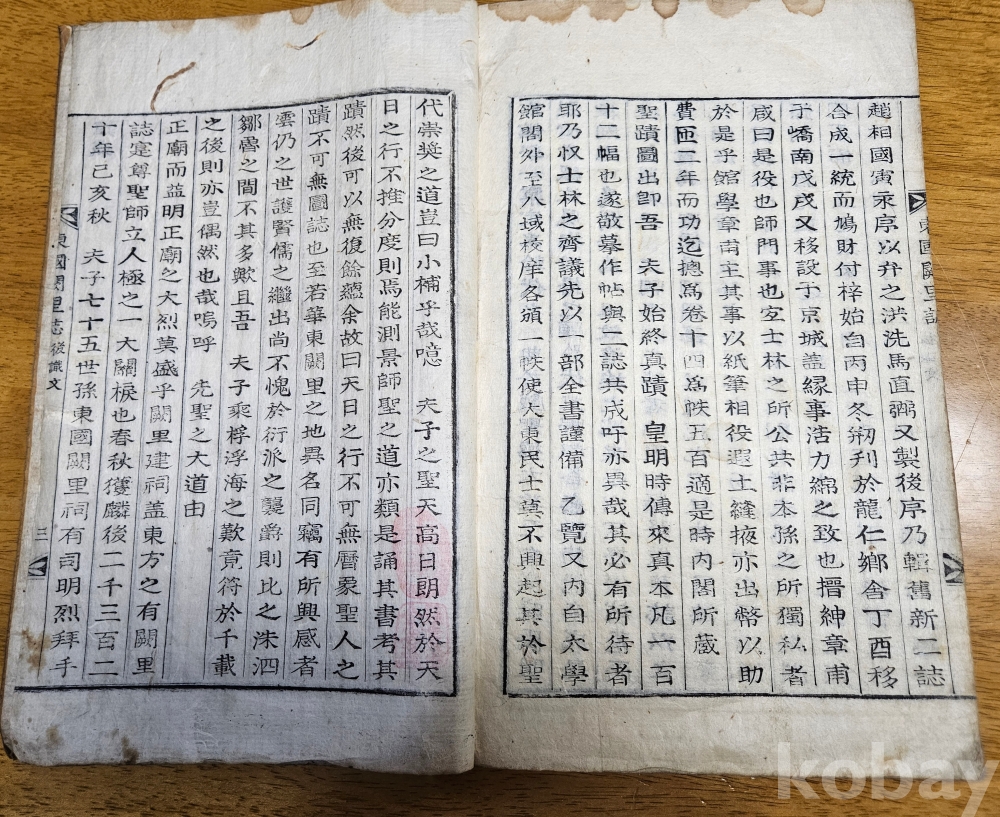 趙相國寅永序以弁之洪洗馬直弼又製後序乃輯舊新二誌
合成一統而鳩財付梓始自丙申冬刱刊於龍仁鄉舍丁酉移
于嶠南戊戌又移設于京城盖緣事浩力綿之致也搢紳章甫
咸曰是役也師門事也宲士林之所公共非本孫之所獨私者
於是乎館學章甫主其事以紙筆相役遐土縫掖亦出幣以助
費匝二年而功迄摠爲卷十四爲帙五百適是時内閣所藏
聖蹟圖出卽吾 夫子始終真蹟 皇明時傳來真本凡一百
十二幅也遂敬摹作帖與二誌共成吁亦異哉其必有所待者
耶乃収士林之齊議先以一部全書謹備 乙覽又内自太學
館閣外至八域校庠各頒一帙使大東民士莫不興起其於聖
東國闕里誌
代崇奬之道豈曰小補乎哉噫 夫子之聖天高日朗然於天
日之行不推分度則焉能測景師聖之道亦類是誦其書考其
蹟然後可以無復餘蘊余故曰天日之行不可無曆象聖人之
蹟不可無圖誌也至若華東闕里之地異名同竊有所興感者
雲仍之世護賢儒之繼出尚不愧於衍派之襲爵則比之洙泗
鄒魯之間不其多歟且吾 夫子乘桴浮海之歎竟符於千載
之後則亦豈偶然也哉嗚呼 先聖之大道由
正廟而益明正廟之大烈莫盛乎闕里建祠盖東方之有闕里
誌寔尊聖師立人極之一大關棙也春秋獲麟後二千三百二
十年己亥秋 夫子七十五世孫東國闕里祠有司明烈拜手
東國闕里誌 後識文 三
kobay